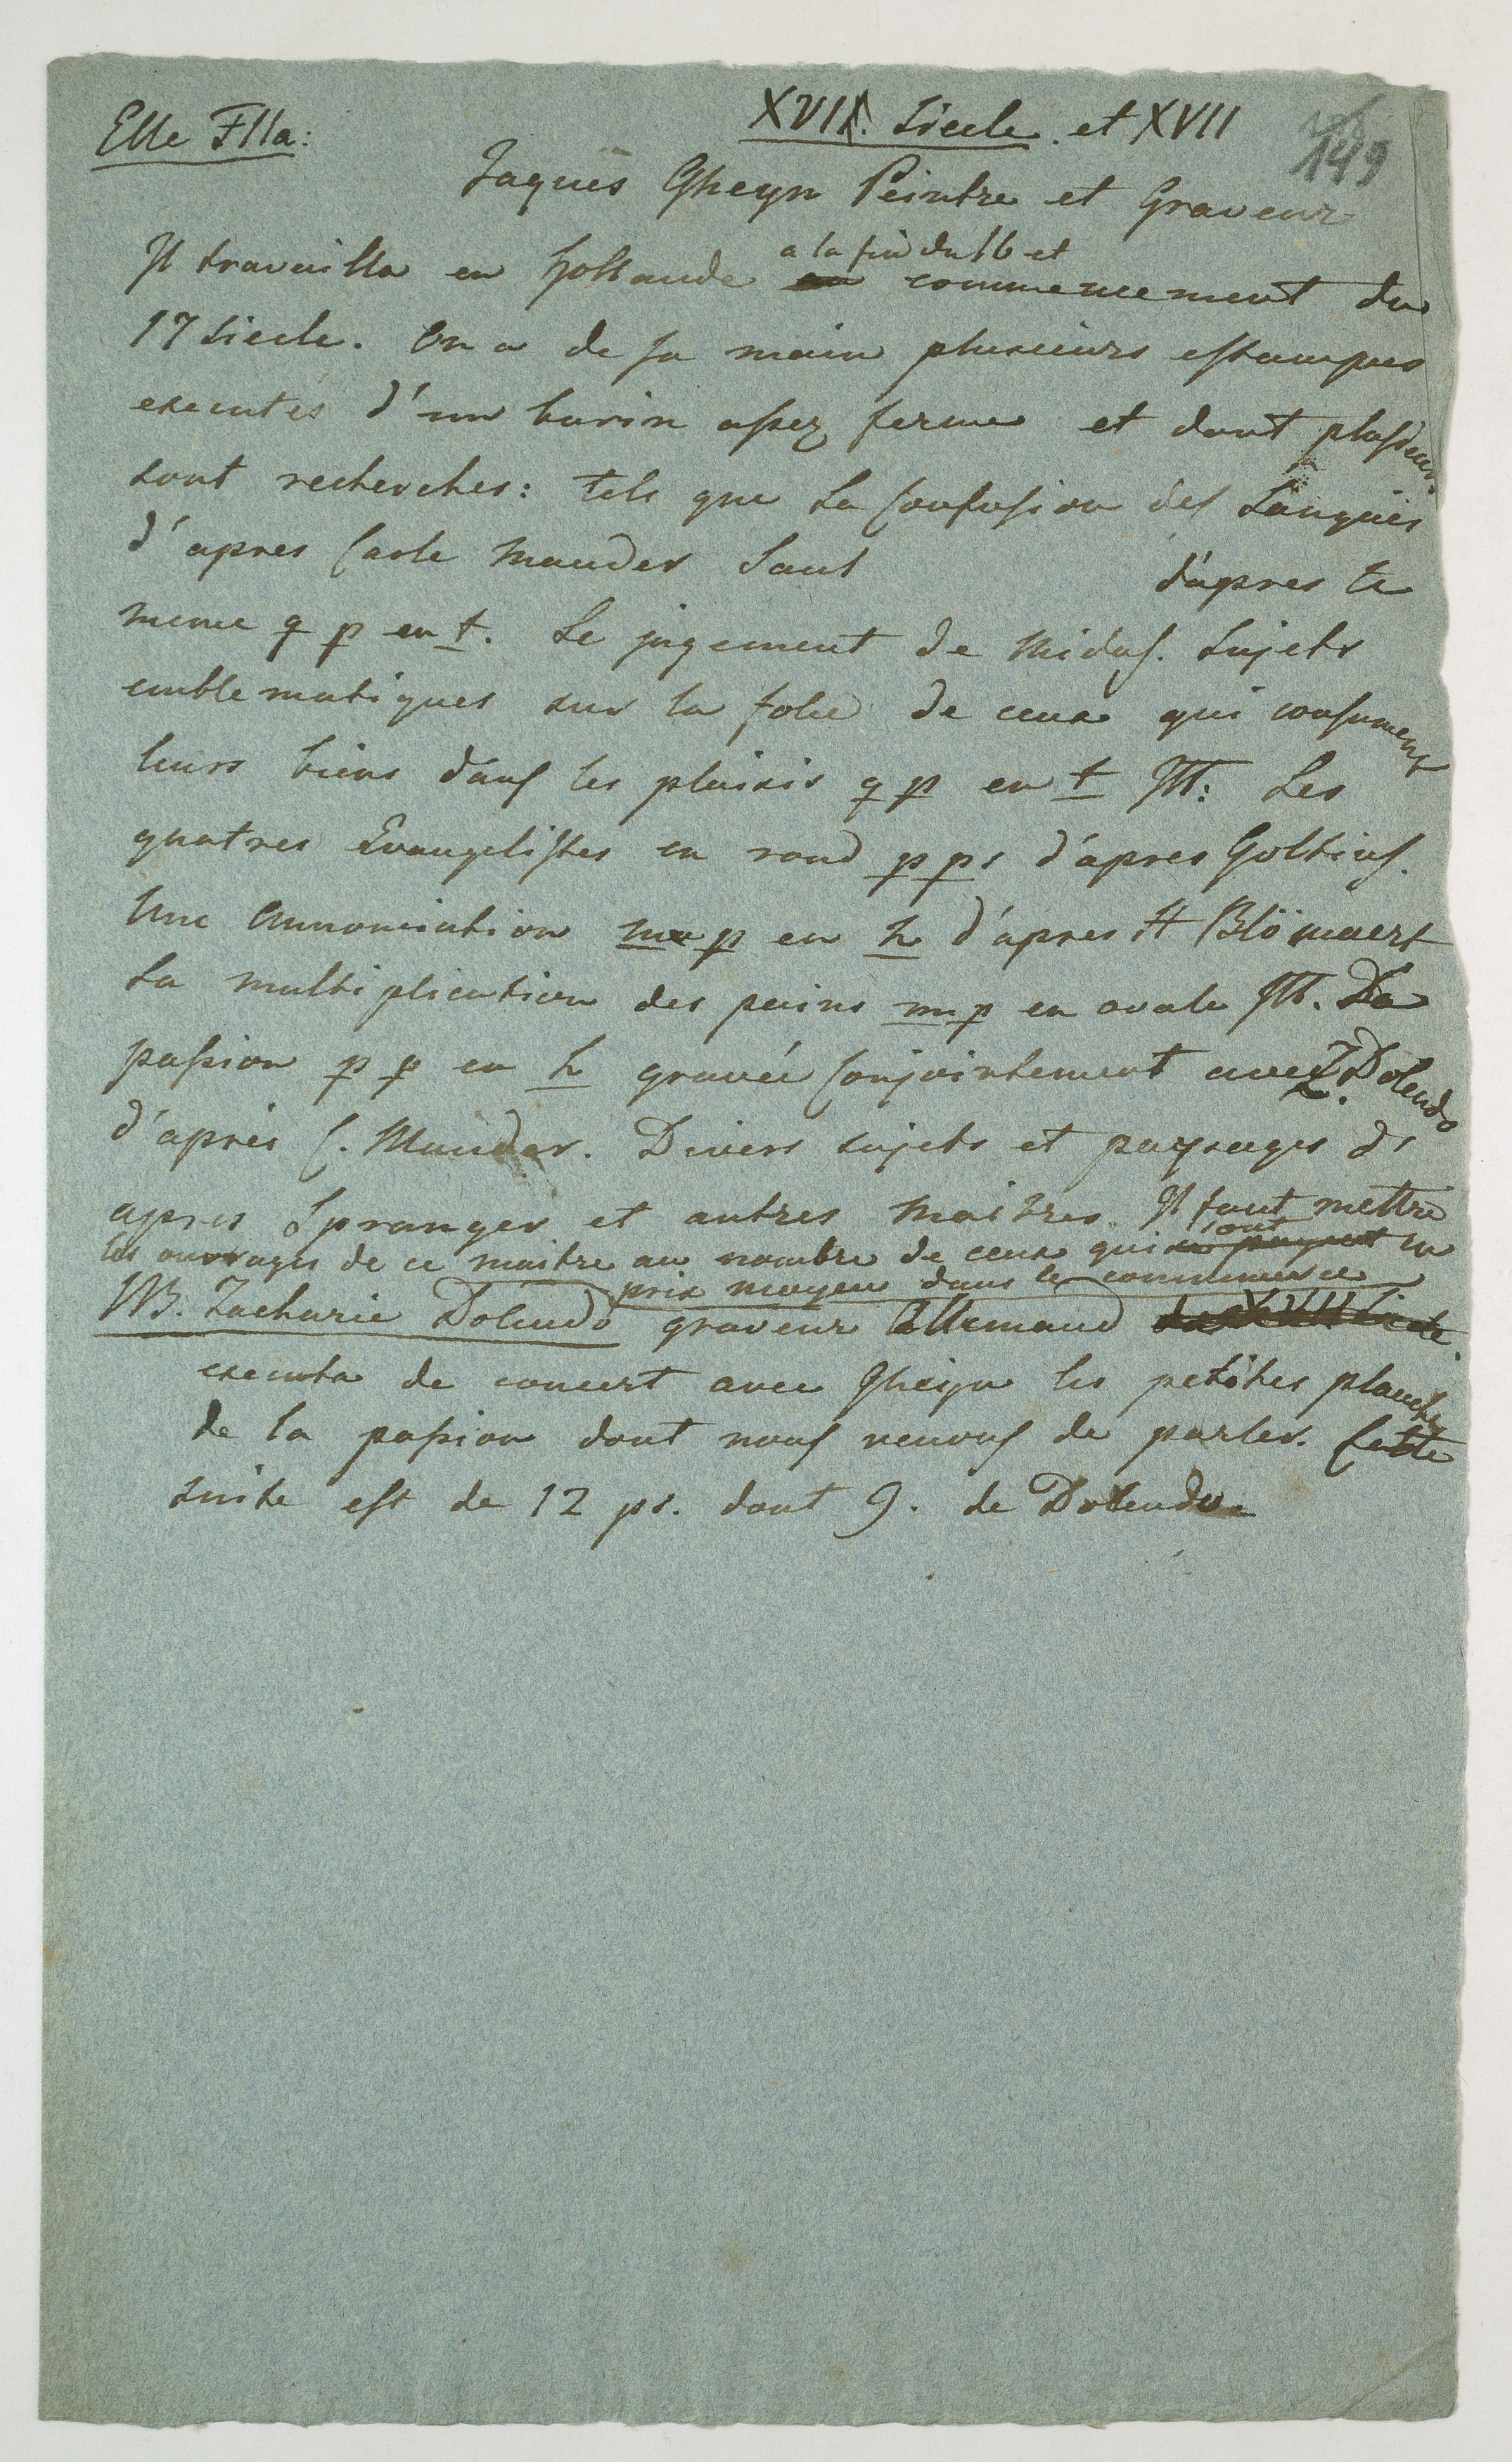 Elle Flla:
XVI. Siecle. et XVII
149
Jaques Gheyn Peintre et Graveur
a la fin du 16 et
Il travailla en hollande au commencement du
17 siecle. On a de sa main plusieurs estampes
executés d'un burin assez ferme et dont plusieurs
sont recherches: tels que La Confusion des Langues
d'apres Carle Mander Saul d'apres le
meme g p en t. Le jugement de Midas. Sujets
emblematiques sur la folie de ceux qui consument
leurs biens dans les plaisis g p en t Id: Les
quatres Evangelistes en rond p ps d'apres Goltius.
Une Annonciation m p en h d'apres A Blömaert
La multiplication des pains m p en ovale Id. La
passion p p en h gravée conjointement avec Z. Dolendo
d'après C. Mander. Divers sujets et paysages d'
apres Spranger et autres Maitres. Il faut mettre
les ouvrages de ce maitre au nombre de ceux qui sont en
prix moyen dans le commerce
NB. Zacharie Dolendo graveur Allemand
executa de concert avec Gheyn les petites planches
de la passion dont nous venons de parler. Cette
suite est de 12 ps. dont 9. de Dolendo